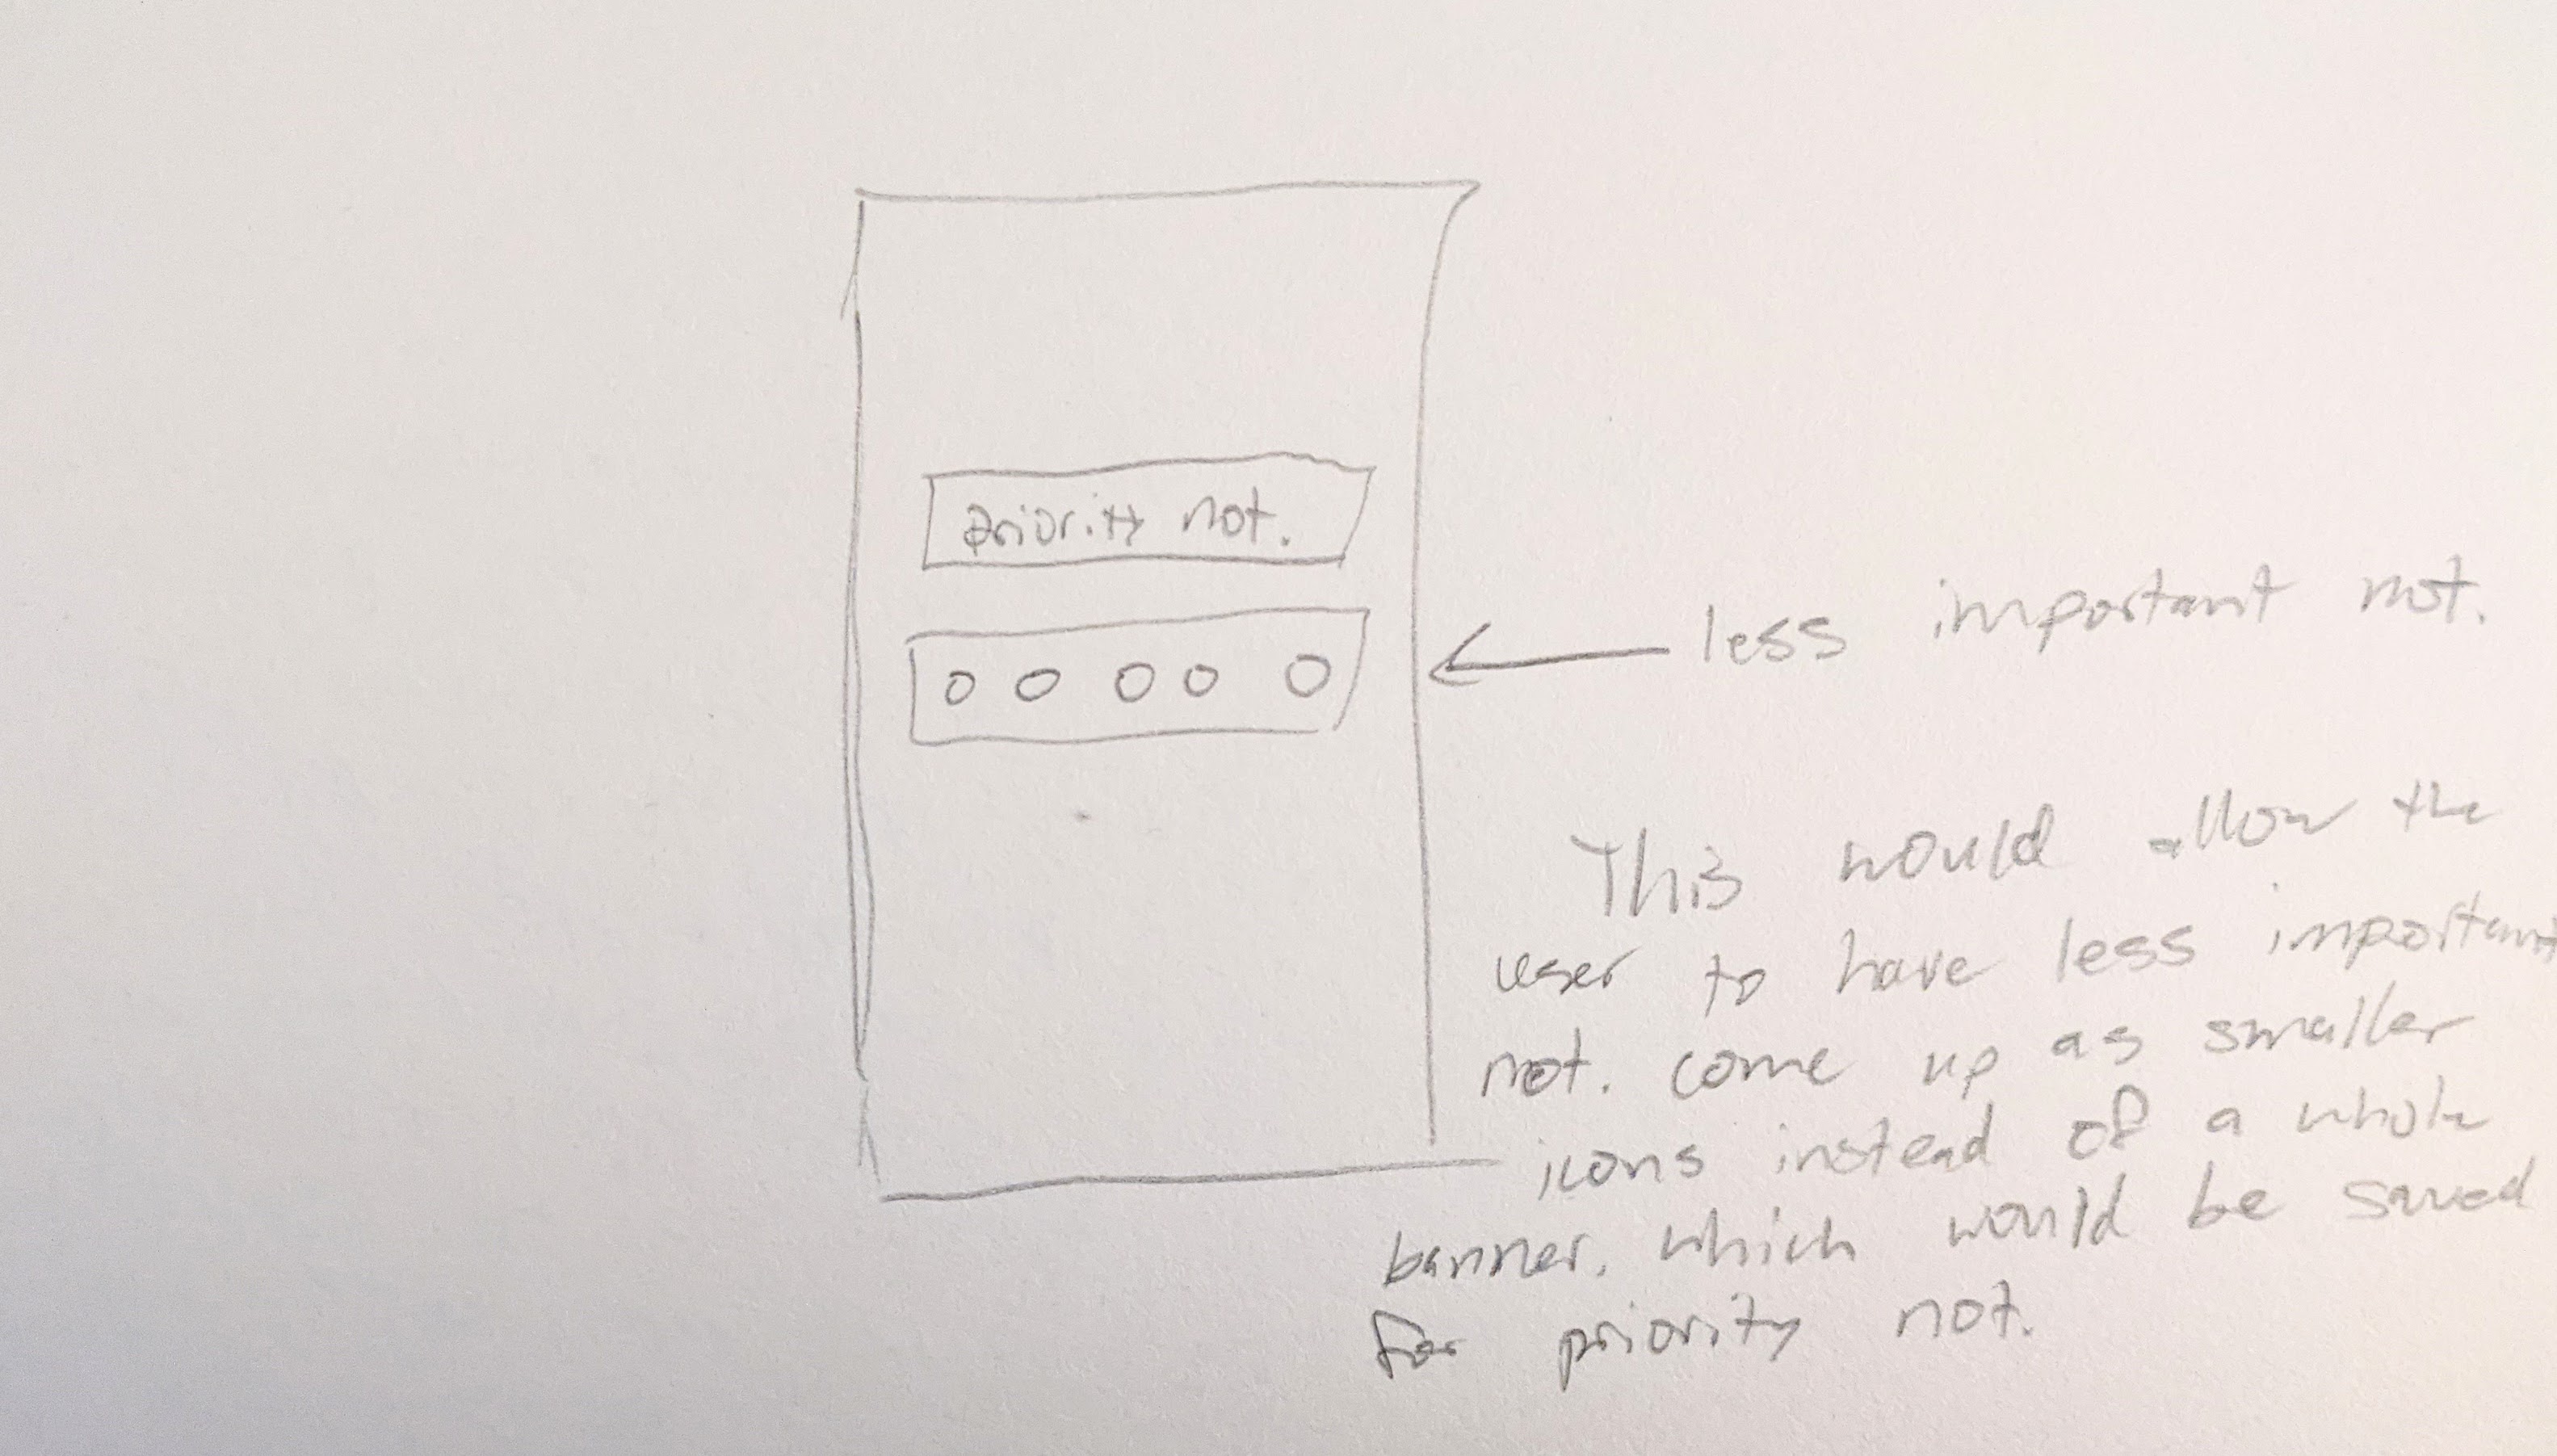 priority not.
less important not.
This would allow the
user to have less important
not. come up as smaller
icons instead of a whole
banner. which would be saved
for priority not.